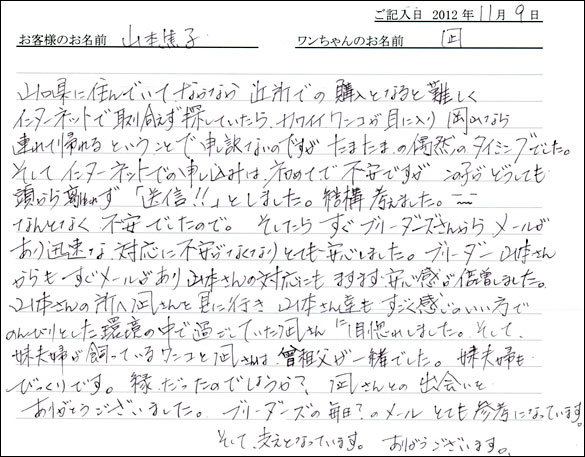 ご記入日 2012年11月9日
お客様のお名前 山本 子 ワンちゃんのお名前 凪
山口県に住んでいてなかなか 近所での 購入となると難しく
インターネットで取り合えず探していたら、カワイイワンコが目に入り 岡山なら
連れて帰れる ということで申訳ないのですが たまたま、の偶然のタイミングでした。
そして インターネットでの申し込みは、初めてで 不安ですが この子が どうしても
頭から離れず 「送信!!」としました。結構 考えました。
なんとなく 不安でしたので。 そしたら すぐ ブリーダーズさんから メールが
あり迅速な 対応に不安がなくなりとても安心しました。ブリーダー 山本さん
からも すぐメールがあり山本さんの対応にも ますます安心感が倍増しました。
山本さんの所へ凪さんを見に行き 山本さん も すごく感じのいい方で
のんびりとした環境の中で過ごしていた凪さん に目惚れしました。そして、
妹夫婦が飼っているワンコと凪さんは 曾祖父が一緒でした。 妹夫婦も
びっくりです。 縁だったのでしょうか? 凪さんとの 出会いを
ありがとうございました。 ブリーダーズの毎日?のメール とても参考になっています。
そして、支えとなっています。 ありがとうございます。